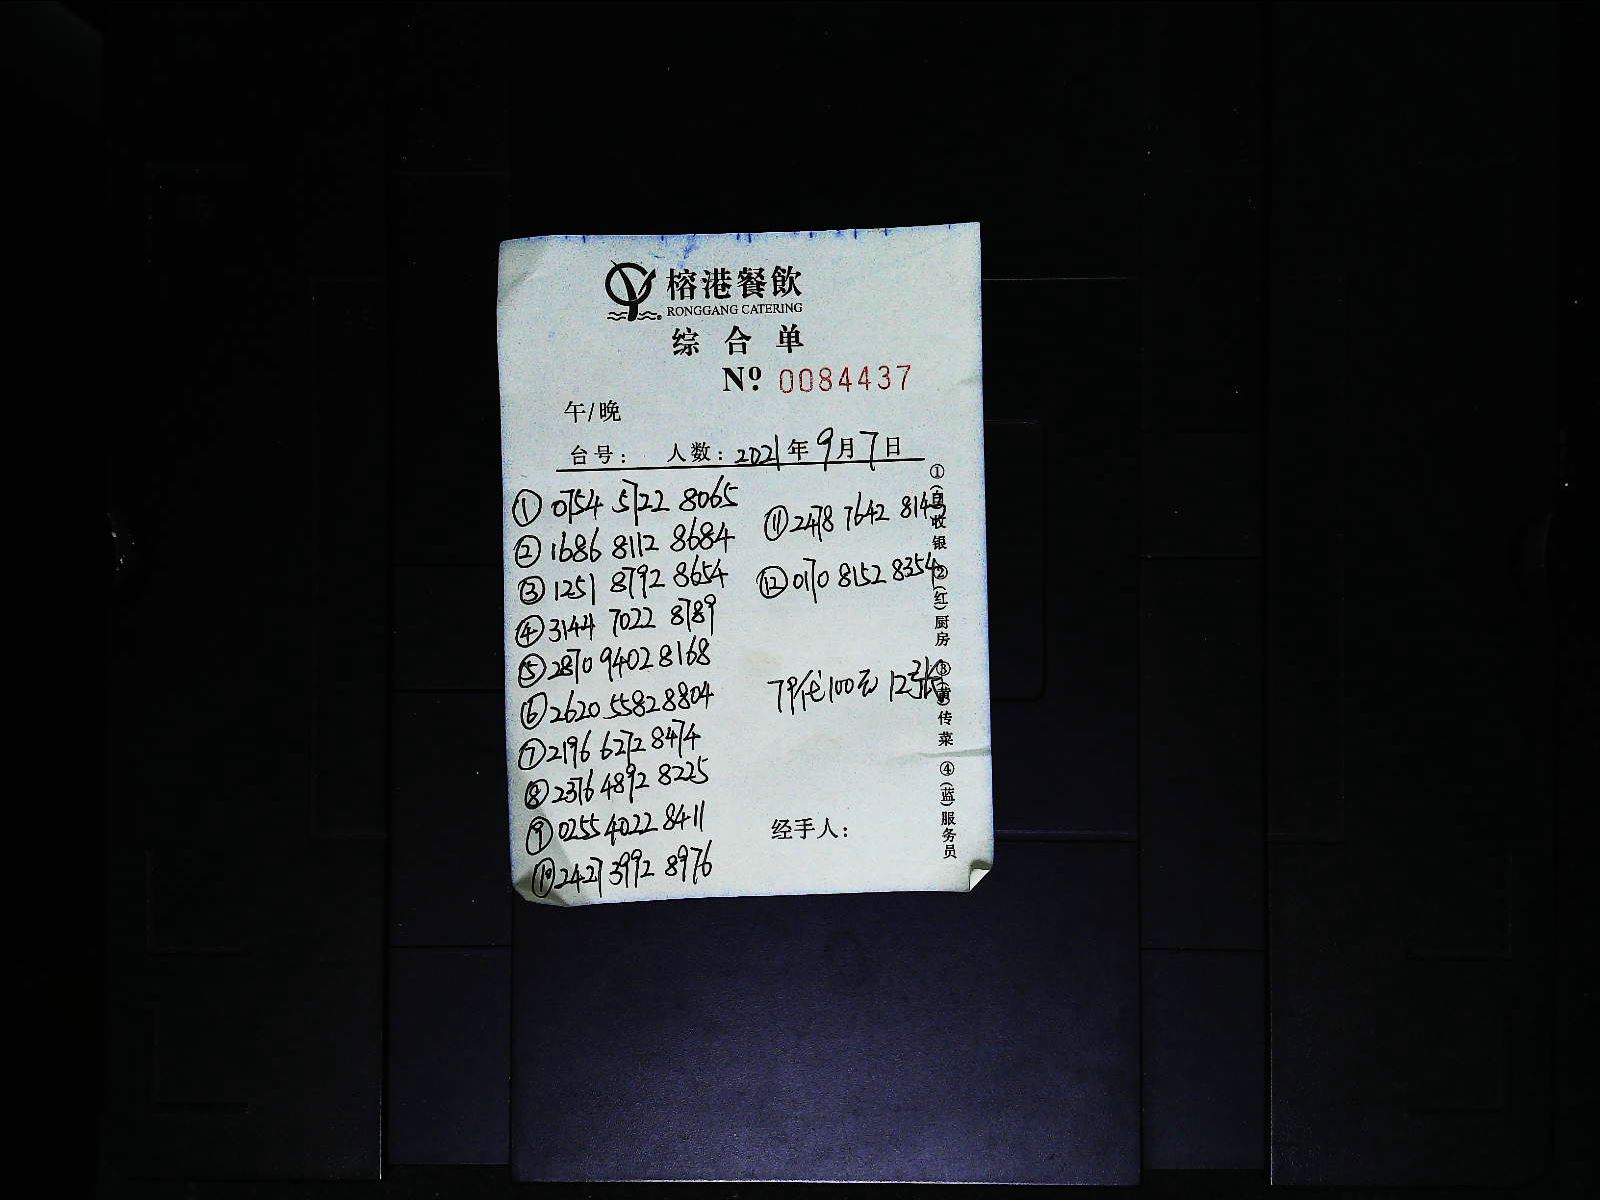 榕港餐飲
RONGGANG CATERING
综合单
Nº 0084437
午/晚
台号: 人数: 2021年9月7日
① 0754 5722 8065
② 1686 8112 8684
③ 1251 8792 8654
④ 3144 7022 8789
⑤ 2870 9402 8168
⑥ 2620 5582 8804
⑦ 2196 6272 8474
⑧ 2376 4892 8225
⑨ 0255 4022 8411
⑩ 2427 3992 8976
⑪ 2478 7642 8143
⑫ 0170 8152 8354
代100元 12张
经手人:
①(白)收银 ②(红)厨房 ③(黄)传菜 ④(蓝)服务员